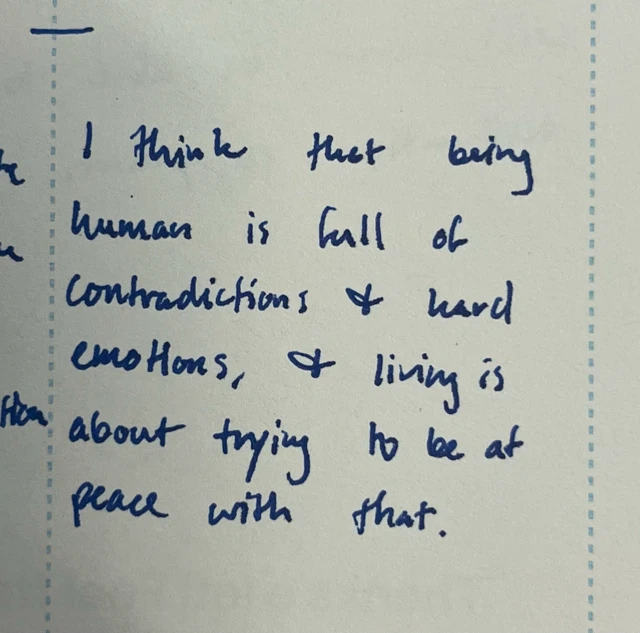 I think that being
human is full of
contradictions & hard
emotions, & living is
about trying to be at
peace with that.